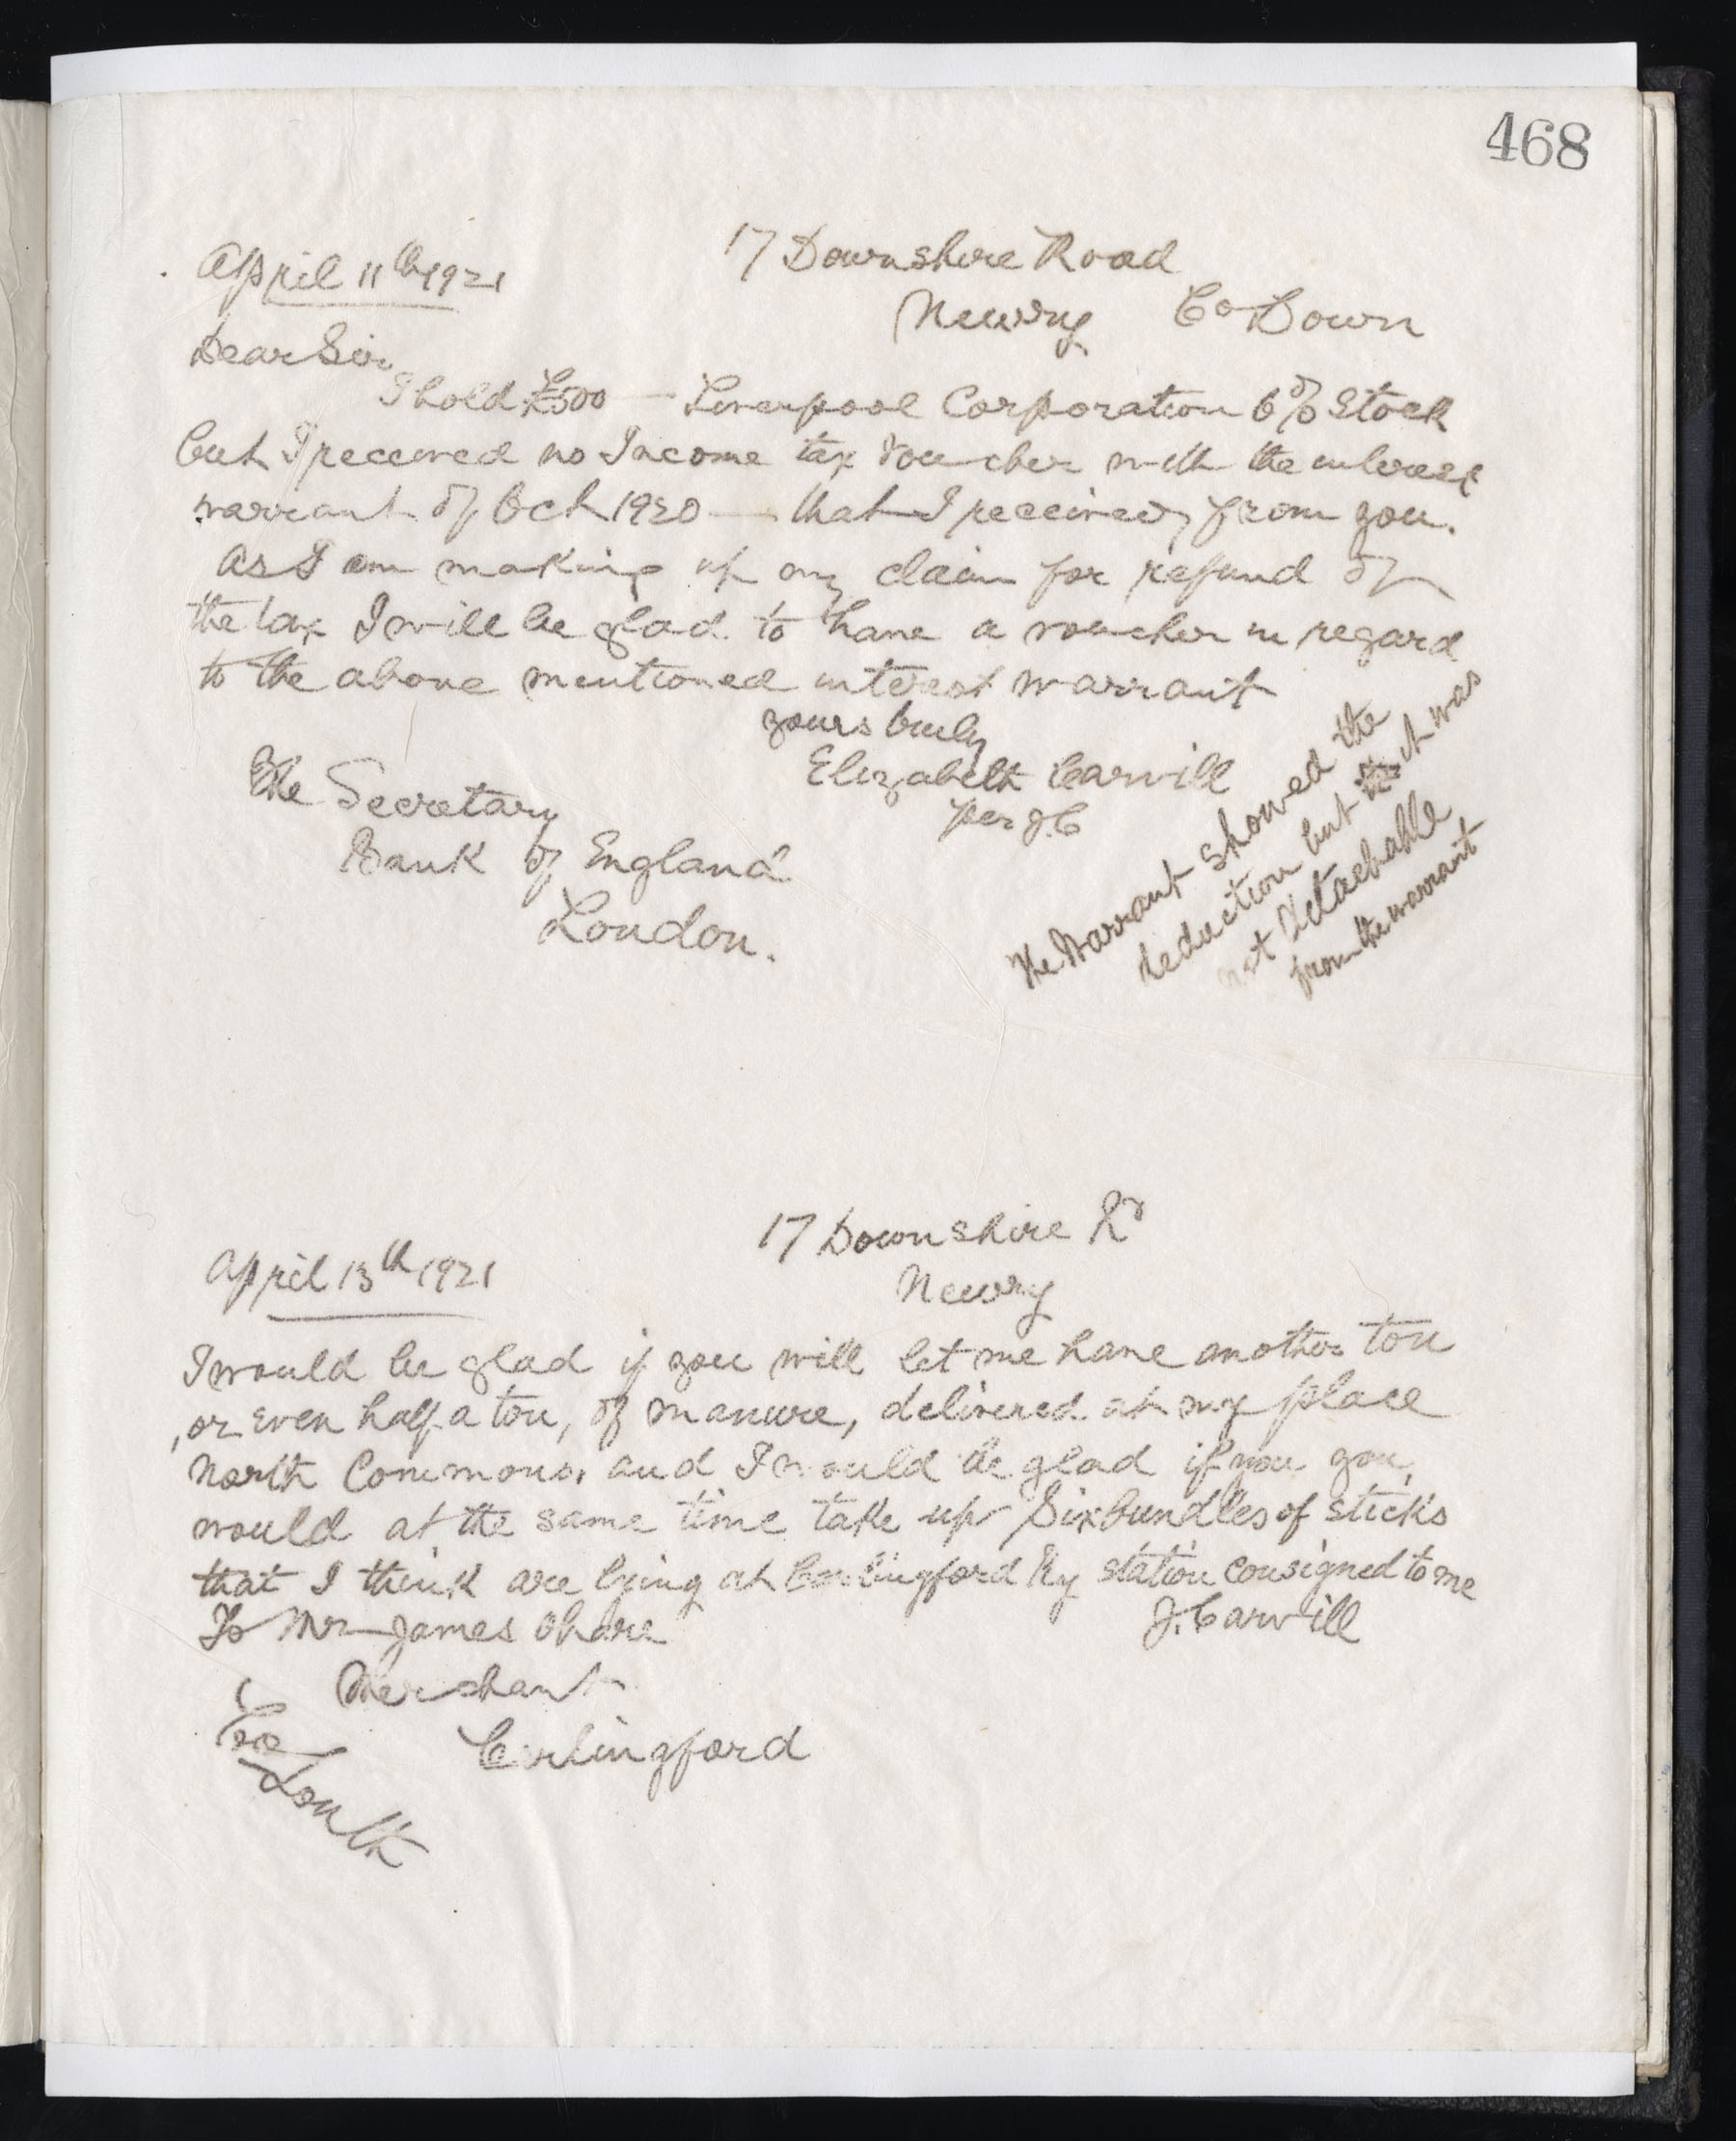 468
17 Downshire Road
April 11th 1921
Newry Co Down
Dear Sir
I hold £500 — Liverpool Corporation 6% Stock
but I received no Income tax Voucher with the interest
warrant of Oct 1920 — that I received from you.
As I am making up my claim for refund of
the tax I will be glad to have a voucher in regard
to the above mentioned interest warrant
yours truly
Elizabeth Carvill
per J.C
The Secretary
Bank of England
London.
The Warrant showed the
deduction but it was
not detachable
from the warrant
17 Downshire Rd
April 13th 1921
Newry
I would be glad if you will let me have another ton
, or even half a ton, of manure, delivered at my place
North Commons, and I would be glad if you you
would at the same time take up Six bundles of sticks
that I think are lying at Carlingford Ry station consigned to me
J. Carvill
To Mr James Ohare
Merchant
Carlingford
Co
Louth